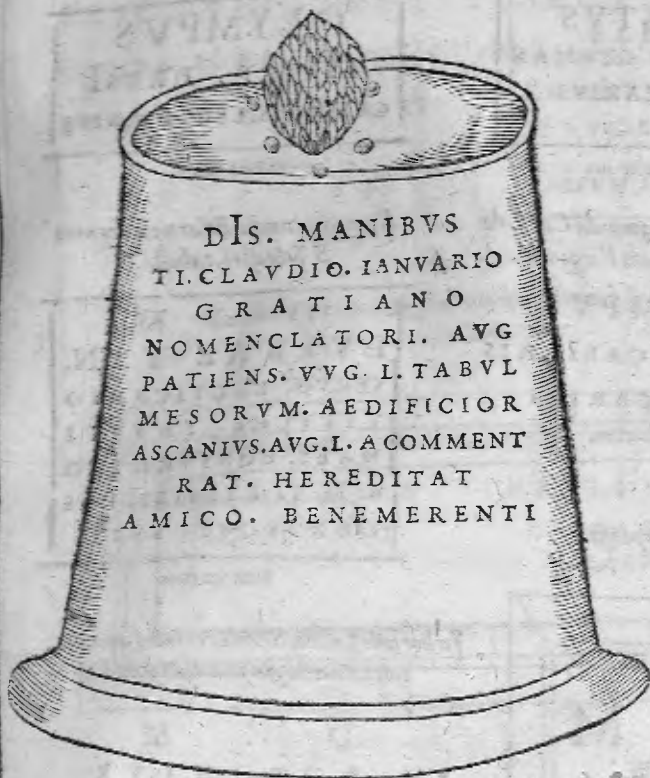 DIS. MANIBVS
TI. CLAVDIO. IANVARIO
GRATIANO
NOMENCLATORI. AVG
PATIENS. VVG. L. TABVL
MESORVM. AEDIFICIOR
ASCANIVS. AVG. L. A COMMENT
RAT. HEREDITAT
AMICO. BENEMERENTI